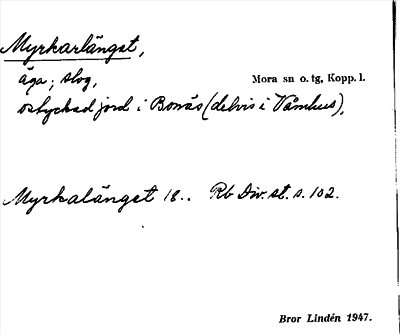 Myrkarlänget,
äga; slog,
Mora sn o. tg, Kopp. l.
ostyckad jord i Bonäs (delvis i Våmhus).
Myrkalänget 18.. Rb Div. st. s. 102.
Bror Lindén 1947.